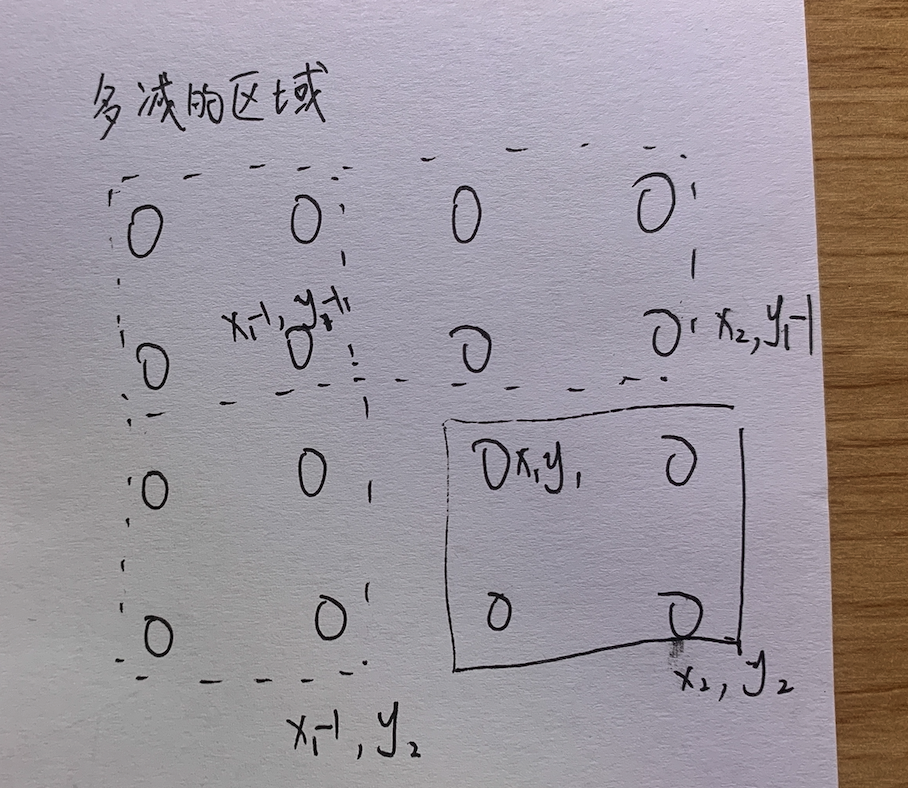 多减的区域
0 0 0 0
x₁-1, y₁-1
0 0 0 0 x₂, y₁-1
0 0 0 x₁y₁ 0
0 0 0 0
x₂, y₂
x₁-1, y₂